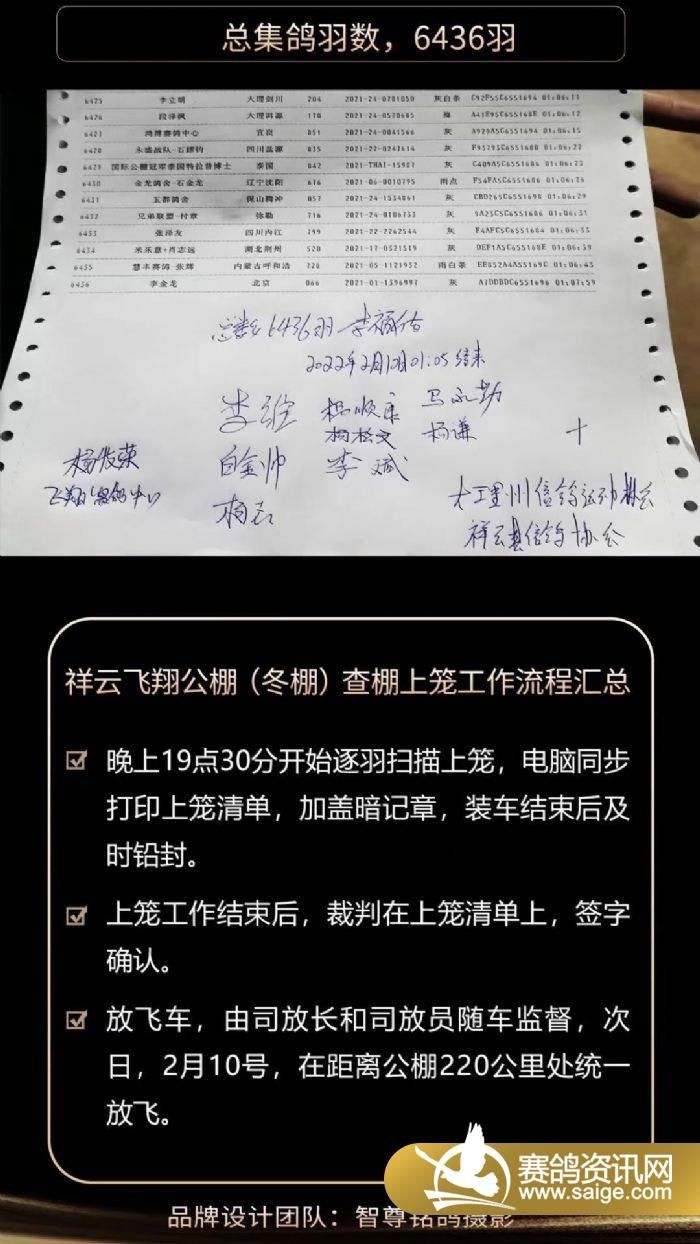 总集鸽羽数，6436羽
6425 李立明 大理剑川 204 2021-24-0781050 灰白条 01:06:11
6426 段泽枫 大理洱源 110 2021-24-0570685 01:06:12
6427 鸿博赛鸽中心 宜良 051 2021-24-0041566 灰 01:06:15
6428 四川盐源 035 2021-22-0241614 灰 01:06:22
6429 国际公棚冠军泰国特拉普博士 泰国 042 2021-THAI-15907 灰 01:06:23
6430 金龙鸽舍-石金龙 辽宁沈阳 616 2021-06-0010795 雨点 01:06:26
6431 玉都鸽舍 保山腾冲 057 2021-24-1534061 灰 01:06:29
6432 兄弟联盟-付章 弥勒 716 2021-24-0106733 灰 01:06:31
6433 张泽友 四川内江 799 2021-22-2262544 灰 01:06:33
6434 米乐意+肖志远 湖北荆州 520 2021-17-0521519 灰 01:06:39
6435 慧丰赛鸽-张辉 内蒙古呼和浩 720 2021-05-1121952 雨白条 01:06:43
6436 李金龙 北京 066 2021-01-1396997 灰 01:07:59
总数6436羽
2022年2月10日01:05结束
李维 杨顺康 马永勤
杨松文 杨谦
杨俊荣 白金帅 李斌
飞翔赛鸽中心
大理州信鸽运动协会
祥云县信鸽协会
祥云飞翔公棚（冬棚）查棚上笼工作流程汇总
晚上19点30分开始逐羽扫描上笼，电脑同步
打印上笼清单，加盖暗记章，装车结束后及
时铅封。
上笼工作结束后，裁判在上笼清单上，签字
确认。
放飞车，由司放长和司放员随车监督，次
日，2月10号，在距离公棚220公里处统一
放飞。
赛鸽资讯网
www.saige.com
品牌设计团队：智尊铭鸽摄影